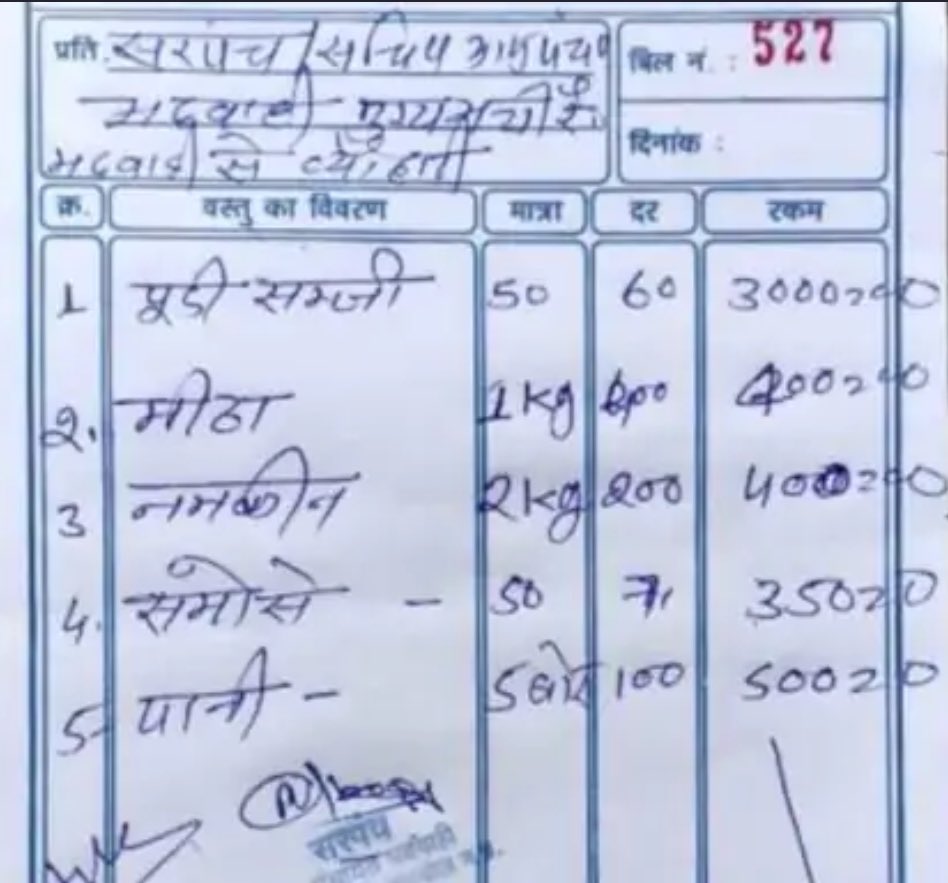 प्रति. सरपंच / सचिव ग्राम पंचा
बिल नं. : 527
भदवाही मुख्यमंत्री
दिनांक :
भदवाही से ब्यौहारी
क्र. वस्तु का विवरण मात्रा दर रकम
1 पूडी सब्जी 50 60 3000=00
2. मीठा 1 kg 400=00
3 नमकीन 2 kg 200 400=00
4. समोसे - 50 7 350=0
5- पानी - 5 100 500=0
सरपंच